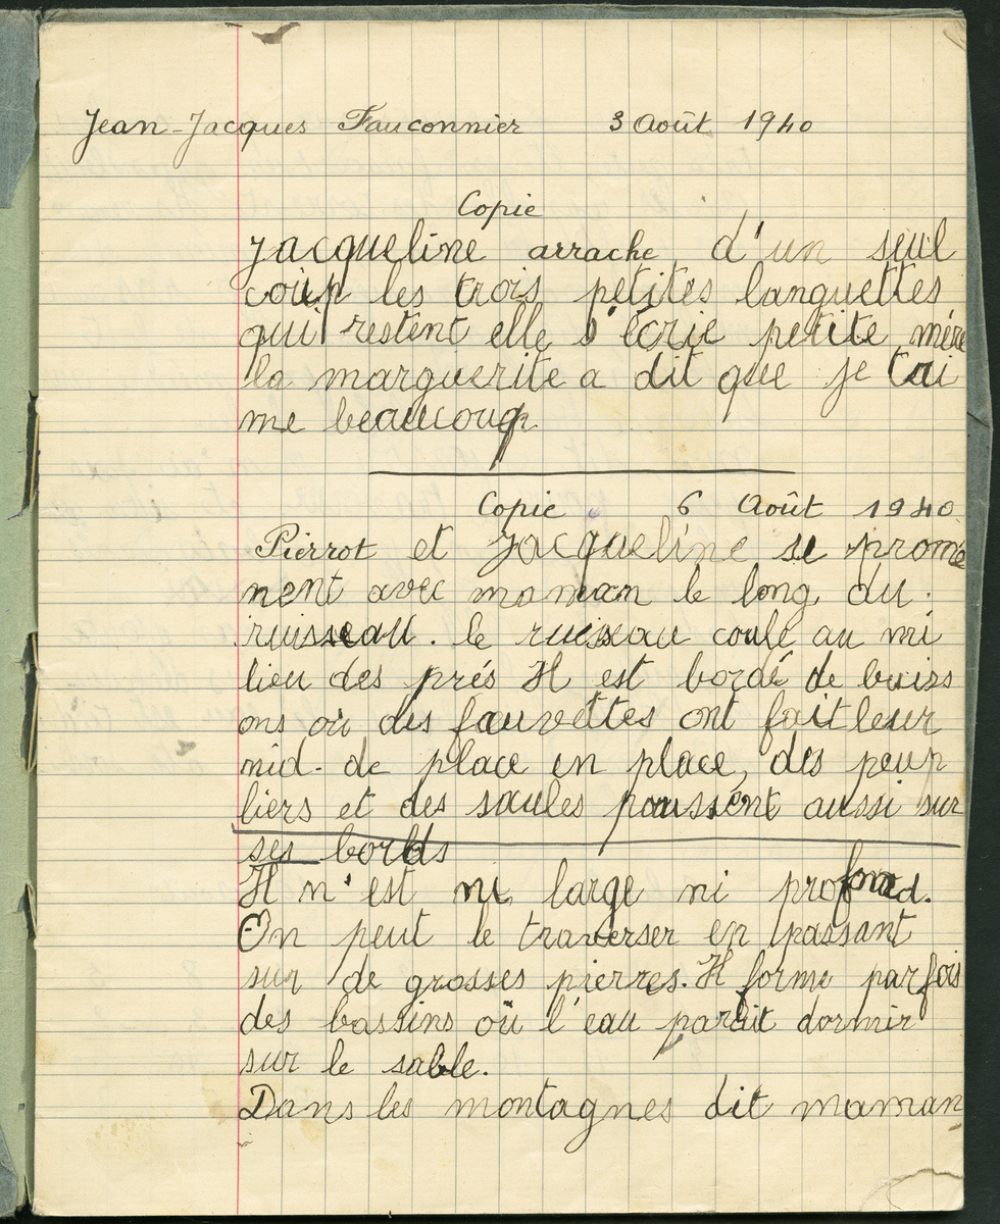 Jean-Jacques Fauconnier 3 Août 1940
Copie
Jacqueline arrache d'un seul
coup les trois petites languettes
qui restent elle s'écrie petite mère
la marguerite a dit que je t'ai
me beaucoup
Copie 6 Août 1940
Pierrot et Jacqueline se promè
nent avec maman le long du.
ruisseau. le ruisseau coule au mi
lieu des prés Il est bordé de buiss
ons où des fauvettes ont fait leur
nid. de place en place, des peup
liers et des saules poussent aussi sur
ses bords
Il n'est ni large ni profond.
On peut le traverser en passant
sur de grosses pierres. Il forme parfois
des bassins où l'eau parait dormir
sur le sable.
Dans les montagnes dit maman